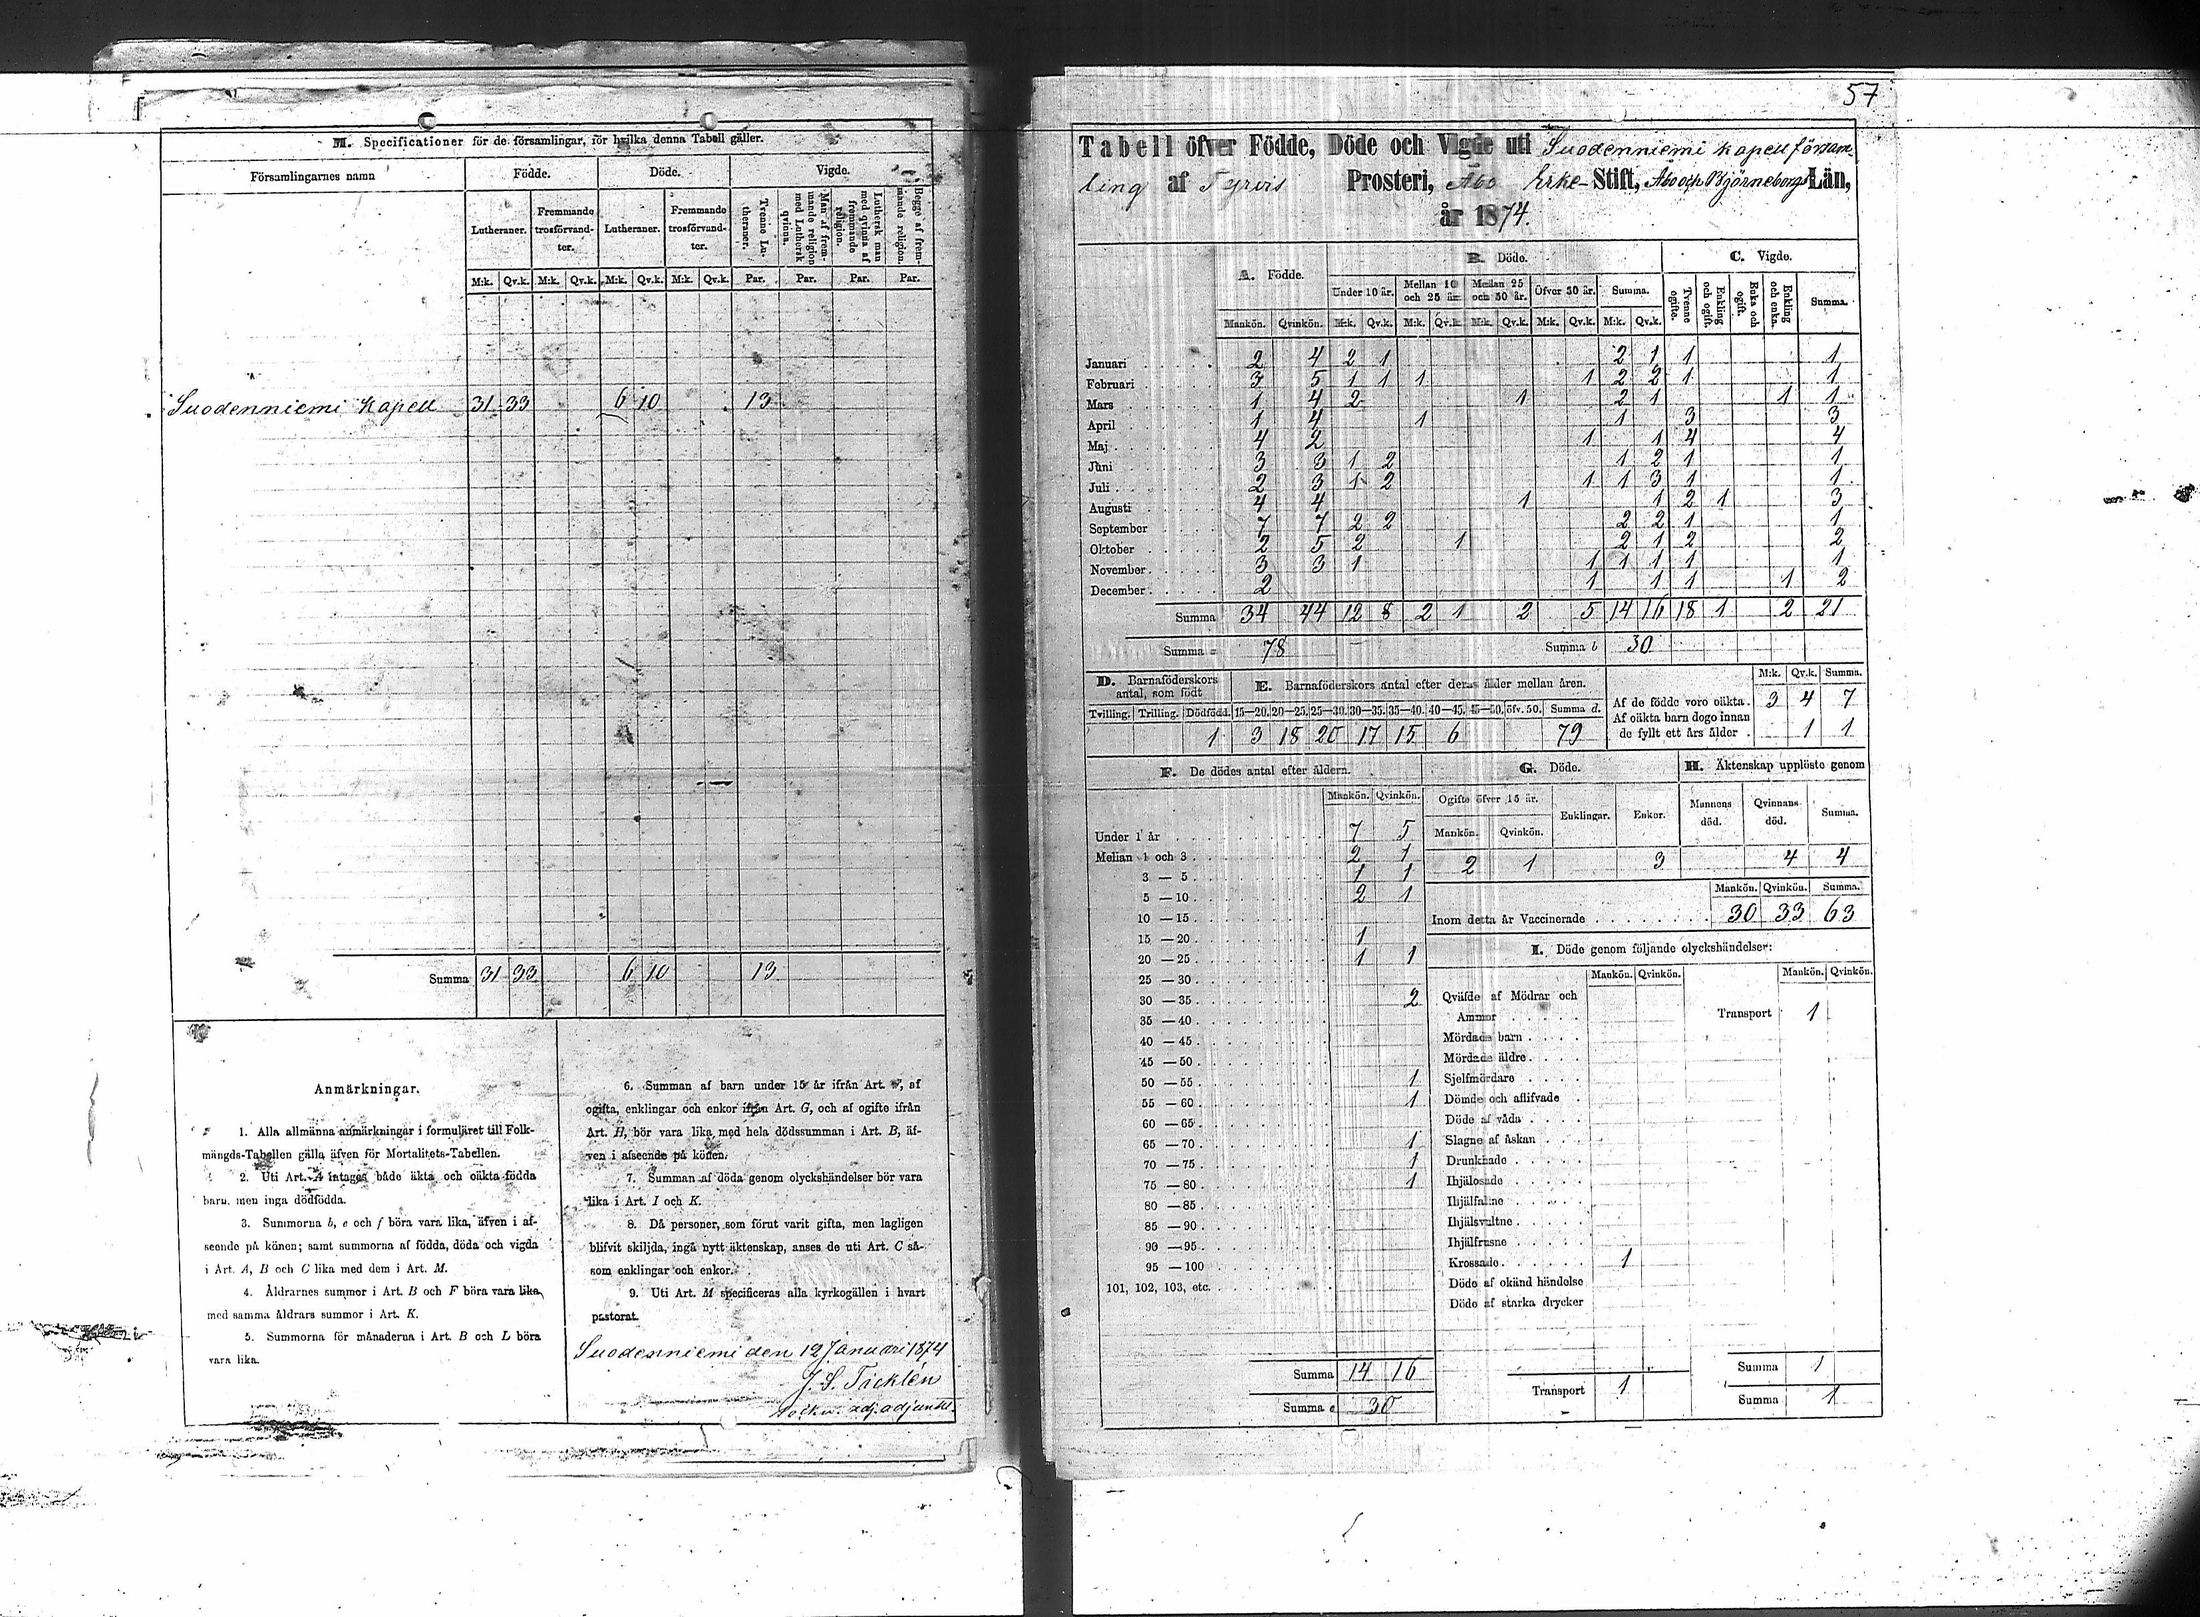 M. Specificationer för de församlingar, för hvilka denna Tabell gäller.
Församlingarnes namn Födde. Döde. Vigde.
Lutheraner. Fremmande trosförvandter. Lutheraner. Fremmande trosförvandter. Tvenne Lutheraner. Man af fremmande religion med Luthersk qvinna. Luthersk man med qvinna af fremmande religion. Begge af fremmande religion.
M:k. Qv.k. M:k. Qv.k. M:k. Qv.k. M:k. Qv.k. Par. Par. Par. Par.
Suodenniemi Kapell 31 33 6 10 13
Summa 31 33 6 10 13
Anmärkningar.
1. Alla allmänna anmärkningar i formuläret till Folk-
mängds-Tabellen gälla äfven för Mortalitets-Tabellen.
2. Uti Art. A intages både äkta och oäkta födda
barn, men inga dödfödda.
3. Summorna b, e och f böra vara lika, äfven i af-
seende på könen; samt summorna af födda, döda och vigda
i Art. A, B och C lika med dem i Art. M.
4. Åldrarnes summor i Art. B och F böra vara lika
med samma åldrars summor i Art. K.
5. Summorna för månaderna i Art. B och L böra
vara lika.
6. Summan af barn under 15 år ifrån Art. , af
ogifta, enklingar och enkor ifrån Art. G, och af ogifte ifrån
Art. H, bör vara lika med hela dödssumman i Art. B, äf-
ven i afseende på könen.
7. Summan af döda genom olyckshändelser bör vara
lika i Art. I och K.
8. Då personer, som förut varit gifta, men lagligen
blifvit skiljda, ingå nytt äktenskap, anses de uti Art. C så-
som enklingar och enkor.
9. Uti Art. M specificeras alla kyrkogällen i hvart
pastorat.
Suodenniemi den 12 Januari 1874
J. S. Täcklén
adj. adjunkt.
57
Tabell öfver Födde, Döde och Vigde uti Suodenniemi kapell försam-
ling af Tyrvis Prosteri, Åbo Erke-Stift, Åbo och Björneborgs Län,
år 1874.
A. Födde. B. Döde. C. Vigde.
Under 10 år. Mellan 10 och 25 år. Mellan 25 och 50 år. Öfver 50 år. Summa. Tvenne ogifte. Enkling och ogift. Enka och ogift. Enkling och enka. Summa.
Mankön. Qvinkön. M:k. Qv.k. M:k. Qv.k. M:k. Qv.k. M:k. Qv.k. M:k. Qv.k.
Januari 2 4 2 1 2 1 1 1
Februari 3 5 1 1 1 1 2 2 1 1
Mars 1 4 2 1 2 1 1 1
April 1 4 1 1 3 3
Maj 4 2 1 1 4 4
Juni 3 3 1 2 1 2 1 1
Juli 2 3 1 2 1 1 3 1 1
Augusti 4 4 1 1 2 1 3
September 7 7 2 2 2 2 1 1
Oktober 2 5 2 1 2 1 2 2
November 3 3 1 1 1 1 1 1
December 2 1 1 1 1 2
Summa 34 44 12 8 2 1 2 5 14 16 18 1 2 21
Summa 78 Summa b 30
D. Barnaföderskors antal, som födt E. Barnaföderskors antal efter deras ålder mellan åren. M:k. Qv.k. Summa.
Tvilling. Trilling. Dödfödd. 15—20. 20—25. 25—30. 30—35. 35—40. 40—45. 45—50. öfv. 50. Summa d.
1 3 18 20 17 15 6 79
Af de födde voro oäkta. 3 4 7
Af oäkta barn dogo innan
de fyllt ett års ålder 1 1
F. De dödes antal efter åldern. G. Döde. H. Äktenskap upplöste genom
Mankön. Qvinkön. Ogifte öfver 15 år. Enklingar. Enkor. Mannens död. Qvinnans död. Summa.
Mankön. Qvinkön.
2 1 3 4 4
Under 1 år 7 5
Mellan 1 och 3 2 1
3 — 5 1 1
5 — 10 2 1
10 — 15
15 — 20 1
20 — 25 1 1
25 — 30
30 — 35 2
35 — 40
40 — 45
45 — 50
50 — 55 1
55 — 60 1
60 — 65
65 — 70 1
70 — 75 1
75 — 80 1
80 — 85
85 — 90
90 — 95
95 — 100
101, 102, 103, etc.
Summa 14 16
Summa e 30
Mankön. Qvinkön. Summa.
Inom detta år Vaccinerade 30 33 63
I. Döde genom följande olyckshändelser:
Mankön. Qvinkön. Mankön. Qvinkön.
Qväfde af Mödrar och
Ammor
Transport 1
Mördade barn
Mördade äldre
Sjelfmördare
Dömde och aflifvade
Döde af våda
Slagne af åskan
Drunknade
Ihjälosade
Ihjälfallne
Ihjälsvultne
Ihjälfrusne
Krossade 1
Döde af okänd händelse
Döde af starka drycker
Summa 1
Transport 1
Summa 1